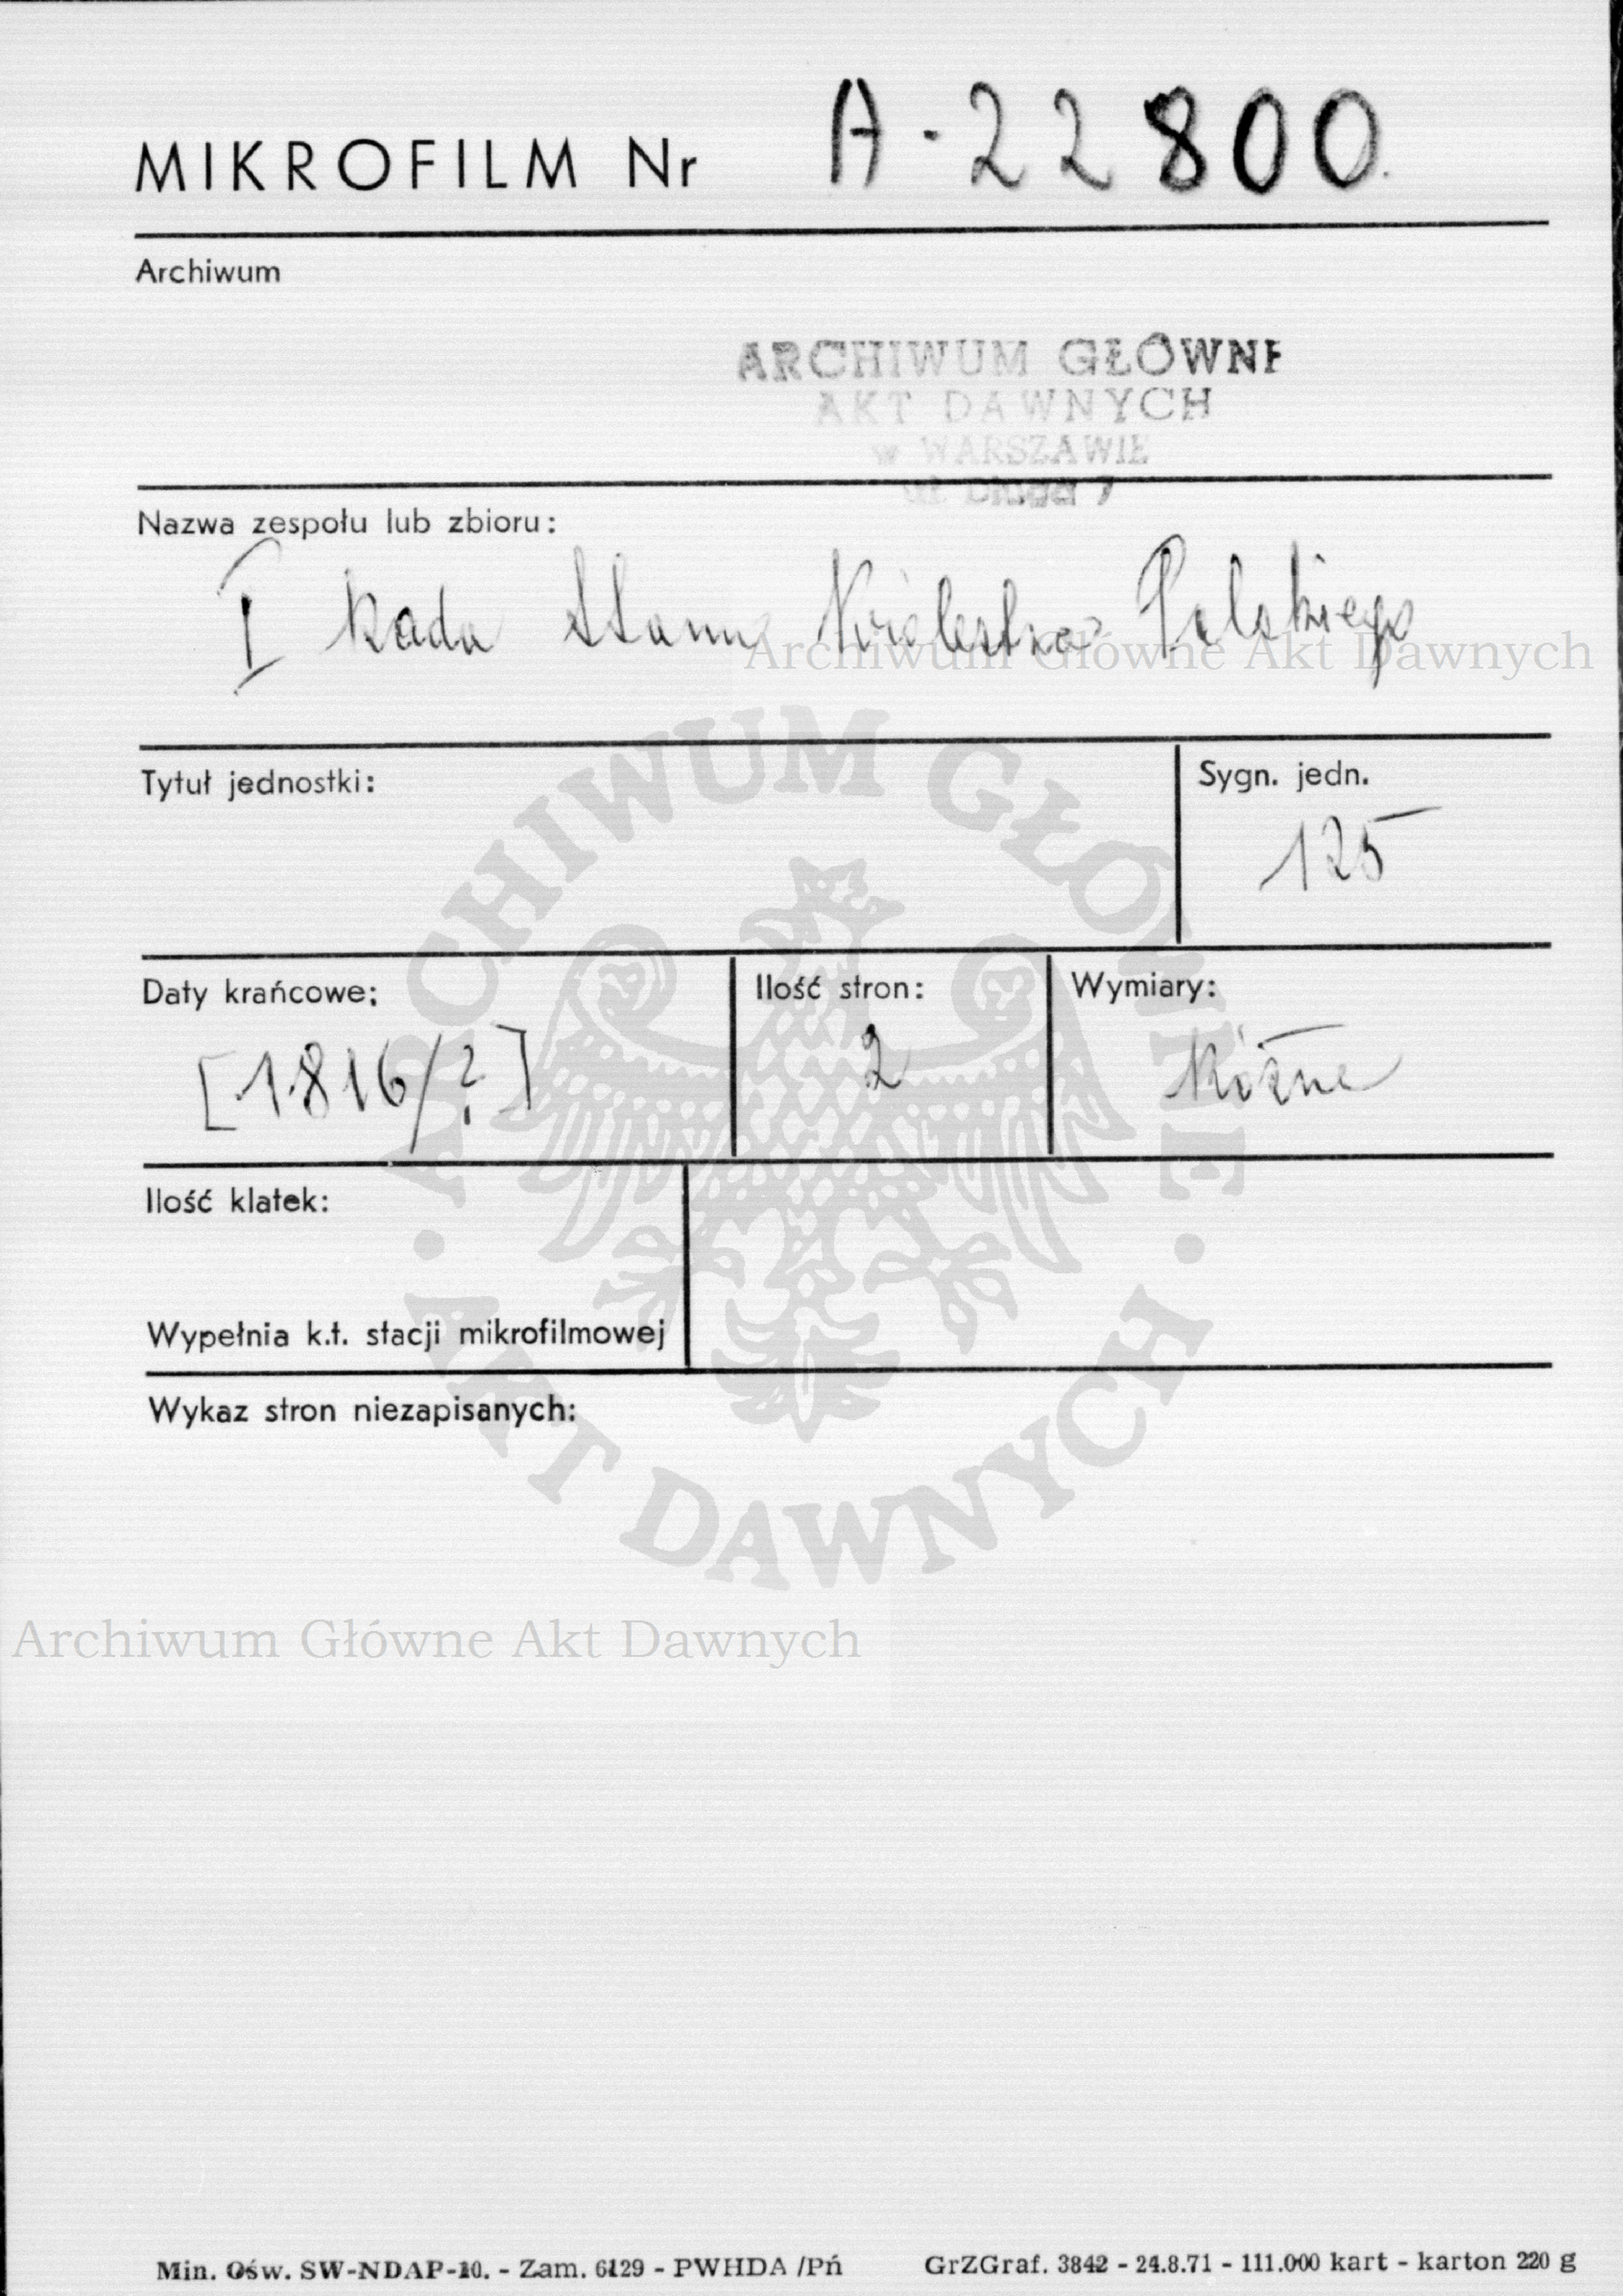 MIKROFILM Nr A-22800.
Archiwum
ARCHIWUM GŁÓWNE
AKT DAWNYCH
w WARSZAWIE
ul. Długa 7
Nazwa zespołu lub zbioru:
I Rada Stanu Królestwa Polskiego
Archiwum Główne Akt Dawnych
Tytuł jednostki:
Sygn. jedn.
125
Daty krańcowe:
Ilość stron:
Wymiary:
[1816/?]
2
Różne
Ilość klatek:
Wypełnia k.t. stacji mikrofilmowej
Wykaz stron niezapisanych:
ARCHIWUM GŁÓWNE
· AKT DAWNYCH ·
Archiwum Główne Akt Dawnych
Min. Ośw. SW-NDAP-10. - Zam. 6129 - PWHDA /Pń
GrZGraf. 3842 - 24.8.71 - 111.000 kart - karton 220 g